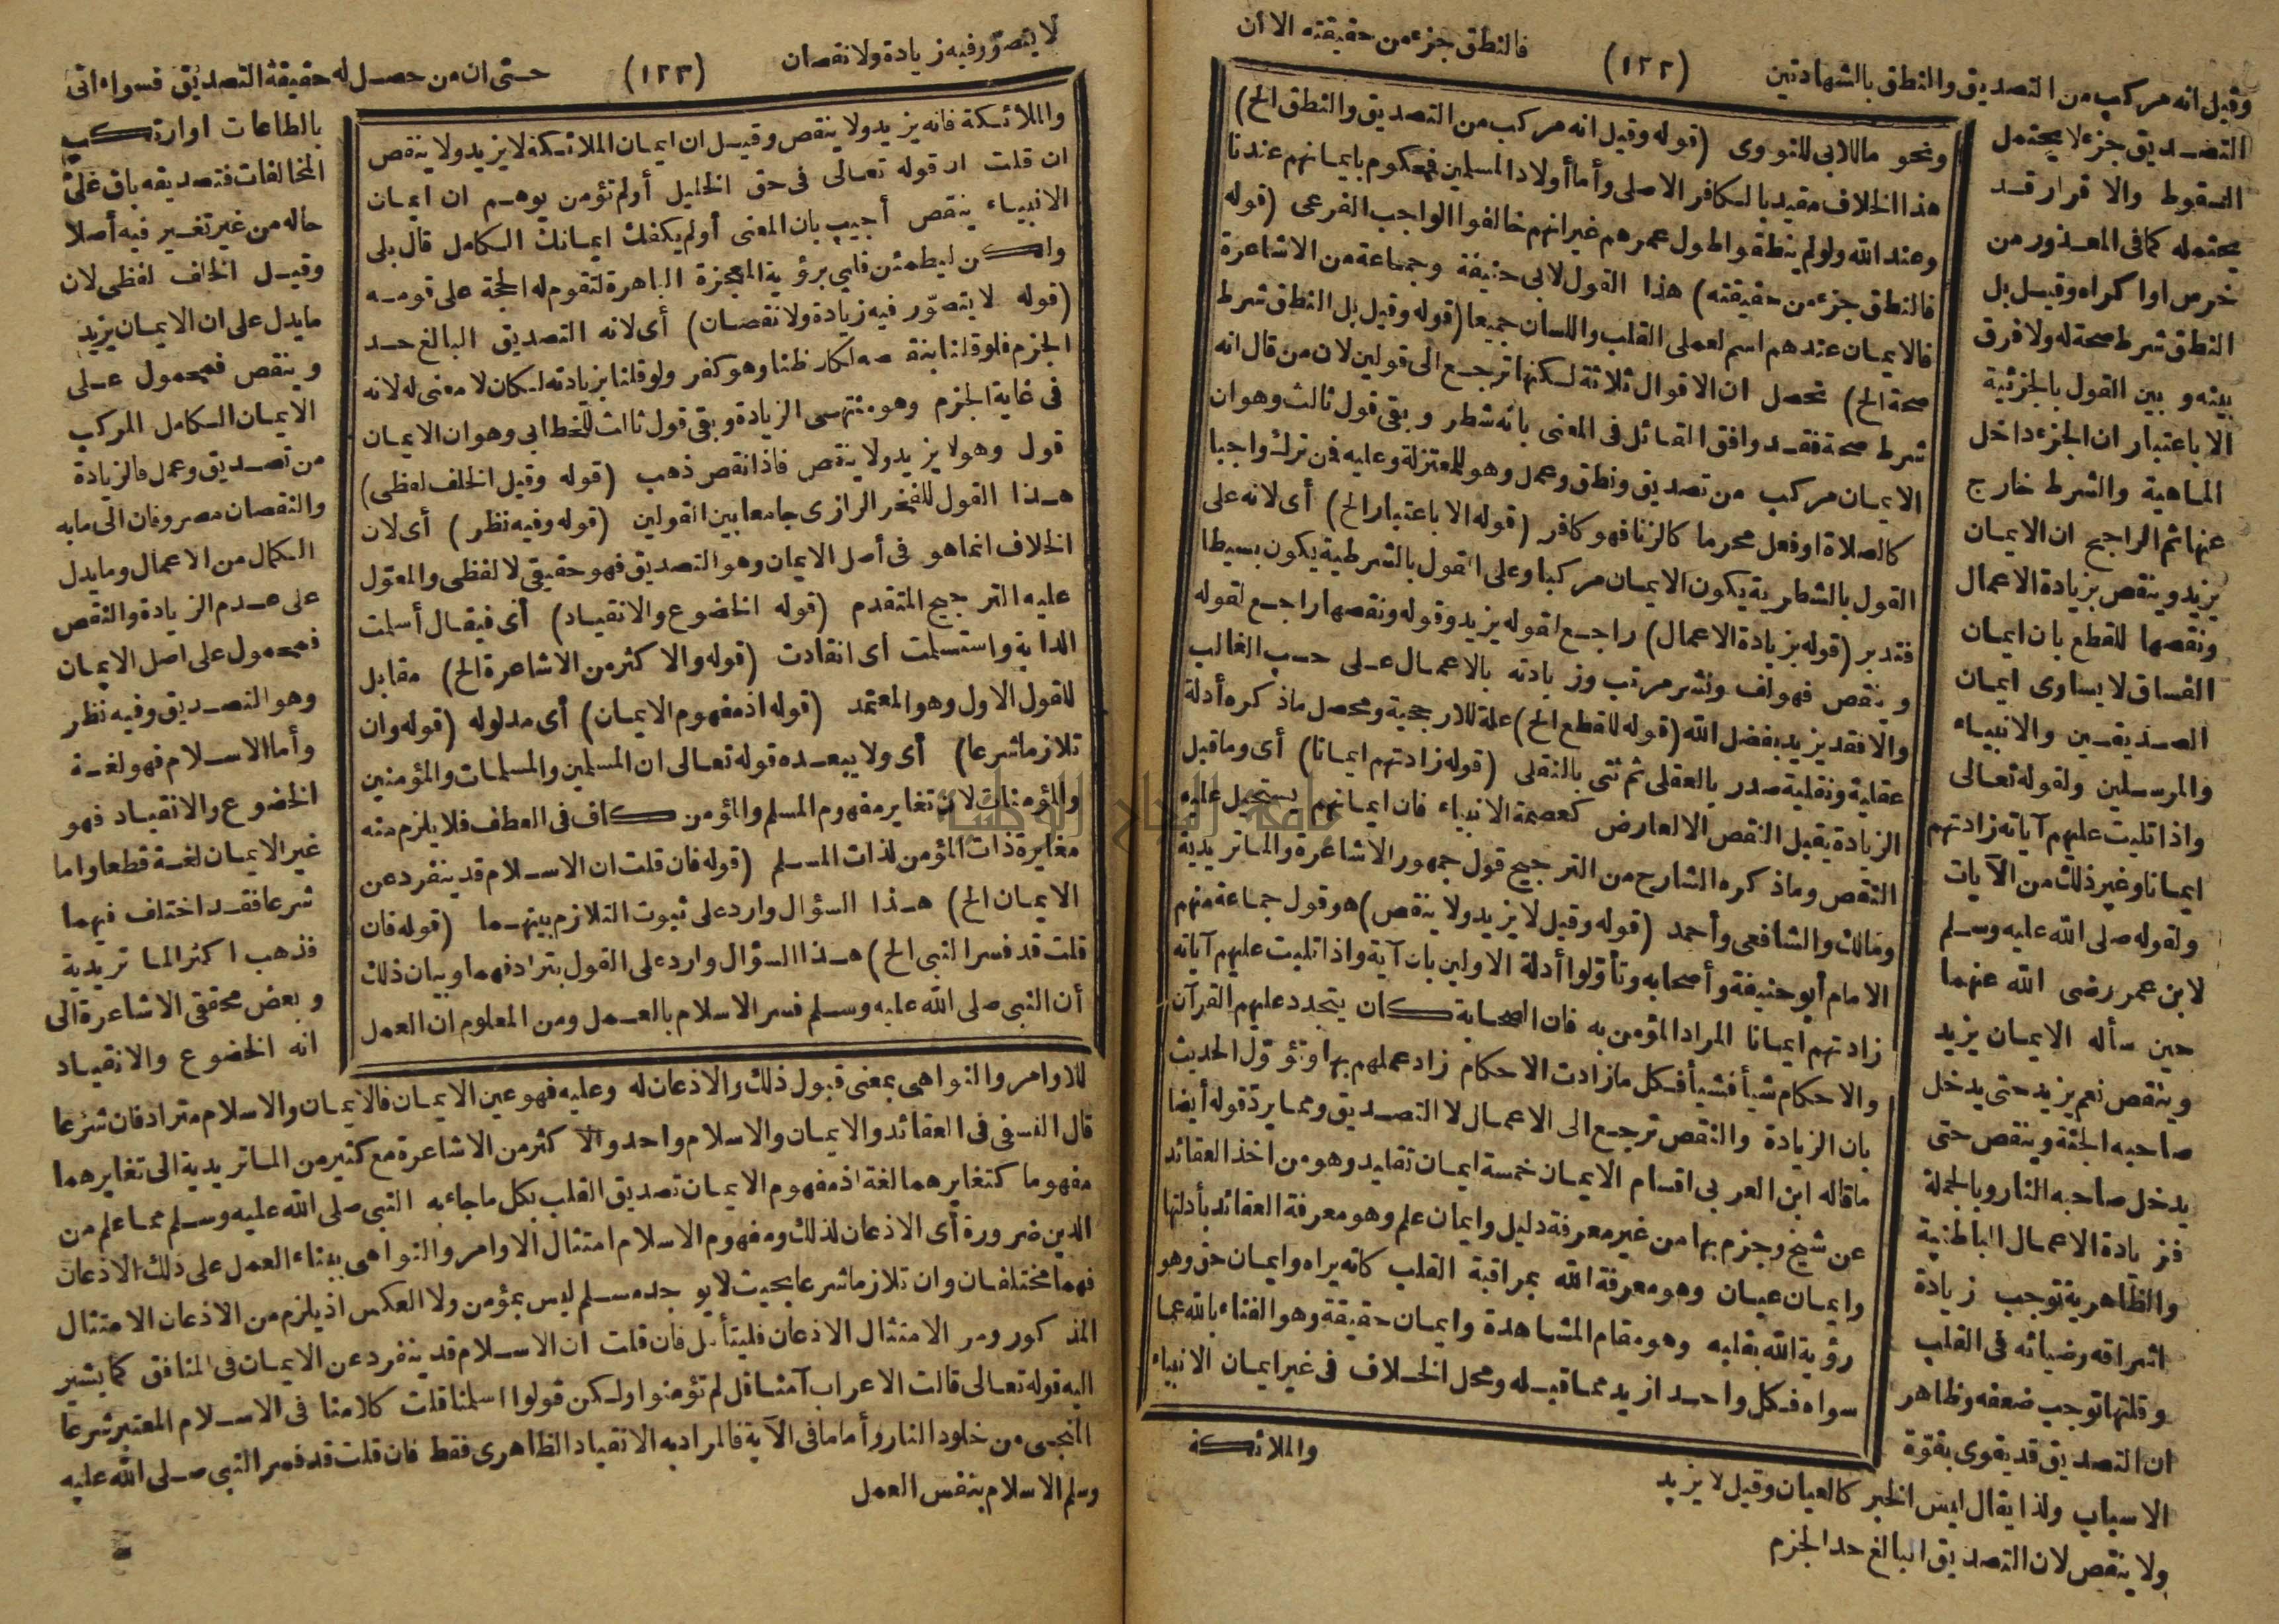 وقيل انه مركب من التصديق والنطق بالشهادتين (١٢٢) فالنطق جزء من حقيقته الا أن
التصديق جزء لا يحتمل
السقوط والاقرار قد
يحتمله كما فى المعذور من
خرس او اكراه وقيل بل
النطق شرط صحة له ولا فرق
بينه وبين القول بالجزئية
الا باعتبار ان الجزء داخل
الماهية والشرط خارج
عنها ثم الراجح ان الايمان
يزيد وينقص بزيادة الاعمال
ونقصها للقطع بان ايمان
الفساق لا يساوى ايمان
الصديقين والانبياء
والمرسلين ولقوله تعالى
واذا تليت عليهم آياته زادتهم
ايمانا وغير ذلك من الآيات
ولقوله صلى الله عليه وسلم
لابن عمر رضى الله عنهما
حين سأله الايمان يزيد
وينقص نعم يزيد حتى يدخل
صاحبه الجنة وينقص حتى
يدخل صاحبه النار وبالجملة
فزيادة الاعمال الباطنية
والظاهرية توجب زيادة
اشراقه وضيائه فى القلب
وقلتها توجب ضعفه وظاهر
ان التصديق قد يقوى بقوة
الاسباب ولذا يقال ليس الخبر كالعيان وقيل لا يزيد
ولا ينقص لان التصديق البالغ حد الجزم
ونحو ما للابى للنووى (قوله وقيل انه مركب من التصديق والنطق الخ)
هذا الخلاف مقيد بالكافر الاصلى وأما أولاد المسلمين فمحكوم بايمانهم عندنا
وعند الله ولو لم ينطقوا طول عمرهم غير انهم خالفوا الواجب الفرعى (قوله
فالنطق جزء من حقيقته) هذا القول لابى حنيفة وجماعة من الاشاعرة
فالايمان عندهم اسم لعملى القلب واللسان جميعا (قوله وقيل بل النطق شرط
صحة الخ) تحصل ان الاقوال ثلاثة لكنها ترجع الى قولين لان من قال انه
شرط صحة فقد وافق القائل فى المعنى بانه شطر وبقى قول ثالث وهو ان
الايمان مركب من تصديق ونطق وعمل وهو للمعتزلة وعليه فمن ترك واجبا
كالصلاة او فعل محرما كالزنا فهو كافر (قوله الا باعتبار الخ) أى لانه على
القول بالشطرية يكون الايمان مركبا وعلى القول بالشرطية يكون بسيطا
فتدبر (قوله بزيادة الاعمال) راجع لقوله يزيد وقوله ونقصها راجع لقوله
وينقص فهو لف ونشر مرتب وزيادته بالاعمال على حسب الغالب
والا فقد يزيد بفضل الله (قوله للقطع الخ) علة للارجحية ومحصل ما ذكره أدلة
عقلية ونقلية صدر بالعقلى ثم ثنى بالنقلى (قوله زادتهم ايمانا) أى وما قبل
الزيادة يقبل النقص الا لعارض كعصمة الانبياء فان ايمانهم يستحيل عليه
النقص وما ذكره الشارح من الترجيح قول جمهور الاشاعرة والماتريدية
ومالك والشافعى وأحمد (قوله وقيل لا يزيد ولا ينقص) هو قول جماعة منهم
الامام أبو حنيفة وأصحابه وتأولوا أدلة الاولين بان آية واذا تليت عليهم آياته
زادتهم ايمانا المراد المؤمن به فان الصحابة كان يتجدد عليهم القرآن
والاحكام شيأ فشيأ فكل ما زادت الاحكام زاد عملهم بها وتؤول الحديث
بان الزيادة والنقص ترجع الى الاعمال لا التصديق ومما يرد قوله أيضا
ما قاله ابن العربى اقسام الايمان خمسة ايمان تقليد وهو من اخذ العقائد
عن شيخ وجزم بها من غير معرفة دليل وايمان علم وهو معرفة العقائد بأدلتها
وايمان عيان وهو معرفة الله بمراقبة القلب كانه يراه وايمان حق وهو
رؤية الله بقلبه وهو مقام المشاهدة وايمان حقيقة وهو الفناء بالله عما
سواه فكل واحد ازيد مما قبله ومحل الخلاف فى غير ايمان الانبياء
والملائكة
لا يتصور فيه زيادة ولا نقصان (١٢٣) حتى ان من حصل له حقيقة التصديق فسواء اتى
بالطاعات او ارتكب
المخالفات فتصديقه باق على
حاله من غير تغير فيه أصلا
وقيل الخلف لفظى لان
ما يدل على ان الايمان يزيد
وينقص فمحمول على
الايمان الكامل المركب
من تصديق وعمل فالزيادة
والنقصان مصروفان الى ما به
الكمال من الاعمال وما يدل
على عدم الزيادة والنقص
فمحمول على اصل الايمان
وهو التصديق وفيه نظر
وأما الاسلام فهو لغة
الخضوع والانقياد فهو
غير الايمان لغة قطعا واما
شرعا فقد اختلف فيهما
فذهب اكثر الماتريدية
وبعض محققى الاشاعرة الى
انه الخضوع والانقياد
والملائكة فانه يزيد ولا ينقص وقيل ان ايمان الملائكة لا يزيد ولا ينقص
ان قلت ان قوله تعالى فى حق الخليل أولم تؤمن يوهم ان ايمان
الانبياء ينقص أجيب بان المعنى أولم يكفك ايمانك الكامل قال بلى
ولكن ليطمئن قلبى برؤية المعجزة الباهرة لتقوم له الحجة على قومه
(قوله لا يتصور فيه زيادة ولا نقصان) أى لانه التصديق البالغ حد
الجزم فلو قلنا بنقصه لكان ظنا وهو كفر ولو قلنا بزيادته لكان لا معنى له لانه
فى غاية الجزم وهو منتهى الزيادة وبقى قول ثالث للخطابى وهو ان الايمان
قول وهو لا يزيد ولا ينقص فاذا نقص ذهب (قوله وقيل الخلف لفظى)
هذا القول للفخر الرازى جامعا بين القولين (قوله وفيه نظر) أى لان
الخلاف انما هو فى أصل الايمان وهو التصديق فهو حقيقى لا لفظى والمعول
عليه الترجيح المتقدم (قوله الخضوع والانقياد) أى فيقال أسلمت
الدابة واستسلمت أى انقادت (قوله والاكثر من الاشاعرة الخ) مقابل
للقول الاول وهو المعتمد (قوله اذ مفهوم الايمان) أى مدلوله (قوله وان
تلازما شرعا) أى ولا يبعده قوله تعالى ان المسلمين والمسلمات والمؤمنين
والمؤمنات لان تغاير مفهوم المسلم والمؤمن كاف فى العطف فلا يلزم منه
مغايرة ذات المؤمن لذات المسلم (قوله فان قلت ان الاسلام قد ينفرد عن
الايمان الخ) هذا السؤال وارد على ثبوت التلازم بينهما (قوله فان
قلت قد فسر النبى الخ) هذا السؤال وارد على القول بترادفهما وبيان ذلك
أن النبى صلى الله عليه وسلم فسر الاسلام بالعمل ومن المعلوم ان العمل
للاوامر والنواهى بمعنى قبول ذلك والاذعان له وعليه فهو عين الايمان فالايمان والاسلام مترادفان شرعا
قال النسفى فى العقائد والايمان والاسلام واحد والاكثر من الاشاعرة مع كثير من الماتريدية الى تغايرهما
مفهوما كتغايرهما لغة اذ مفهوم الايمان تصديق القلب بكل ما جاء به النبى صلى الله عليه وسلم مما علم من
الدين ضرورة أى الاذعان لذلك ومفهوم الاسلام امتثال الاوامر والنواهى ببناء العمل على ذلك الاذعان
فهما مختلفان وان تلازما شرعا بحيث لا يوجد مسلم ليس بمؤمن ولا العكس اذ يلزم من الاذعان الامتثال
المذكور ومن الامتثال الاذعان فليتأمل فان قلت ان الاسلام قد ينفرد عن الايمان فى المنافق كما يشير
اليه قوله تعالى قالت الاعراب آمنا قل لم تؤمنوا ولكن قولوا اسلمنا قلت كلامنا فى الاسلام المعتبر شرعا
المنجى من خلود النار وأما ما فى الآية فالمراد به الانقياد الظاهرى فقط فان قلت قد فسر النبى صلى الله عليه
وسلم الاسلام بنفس العمل
جامعة النجاح الوطنية